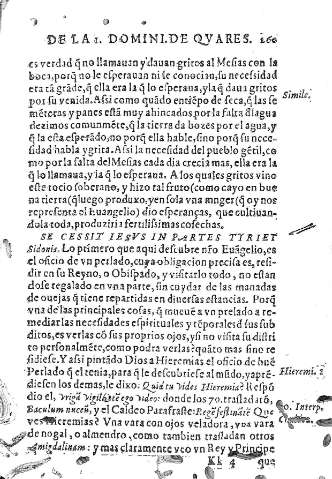 DE LA 1. DOMINI. DE QVARES. 260
es verdad q̃ no llamauan y dauan gritos al Mesias con la
boca, porq̃ no le esperauan ni le conocian, su necesidad
era tã grãde, q̃ ella era la q̃ lo esperaua, y la q̃ daua gritos
por su venida. Asi como quãdo en tiẽpo de seca, q̃ las se
mẽteras y panes està muy ahincados por la falta dl agua
dezimos comunmẽte, q̃ la tierra da bozes por el agua, y
q̃ la està esperãdo, no porq̃ ella hable, sino porq̃ su nece
sidad habla y grita. Asi la necesidad del pueblo gẽtil, co
mo por la falta del Mesias cada dia crecia mas, ella era la
q̃ lo llamaua, y la q̃ lo esperaua. A los quales gritos vino
este rocio soberano, y hizo tal fruto (como cayo en bue
na tierra (q̃ luego produxo, y en sola vna muger (q̃ oy nos
representa el Euangelio) dio esperanças, que cultiuan-
dola toda, produziria fertilissimas cosechas.
Simile.
SE CESSIT IESVS IN PARTES TYRI ET
Sidonis. Lo primero que aqui descubre nr̃o Euãgelio, es
el oficio de vn perlado, cuya obligacion precisa es, resi-
dir en su Reyno, o Obispado, y visitarlo todo, no estan
dose regalado en vna parte, sin cuydar de las manadas
de ouejas q̃ tiene repartidas en diuersas estancias. Porq̃
vna de las principales cosas, q̃ mueuẽ a vn prelado a re-
mediar las necesidades espirituales y tẽporales d̃ sus sub
ditos, es verlas cõ sus propios ojos, y si no visita su distri
to personalmẽte, como podra verlas? quãto mas sino re
sidiese. Y asi pintãdo Dios a Hieremias el oficio de buẽ
Perlado q̃ el tenia, para q̃ le descubriese al mũdo, y aprẽ-
diesen los demas, le dixo. Quid tu vides Hieremia? Respõ
dio el, Virgã vigilãtẽ ego video: donde los 70. trasladarõ,
Baculum nuceũ, y el Caldeo Parafraste. Regẽ festinãtẽ Que
ves Hieremias? Vna vara con ojos veladora, y vna vara
de nogal, o almendro, como tambien trasladan otros
Amigdalinam: y mas claramente veo vn Rey y Principe
Hieremi. 1
70. Interp.
Kk 4 que